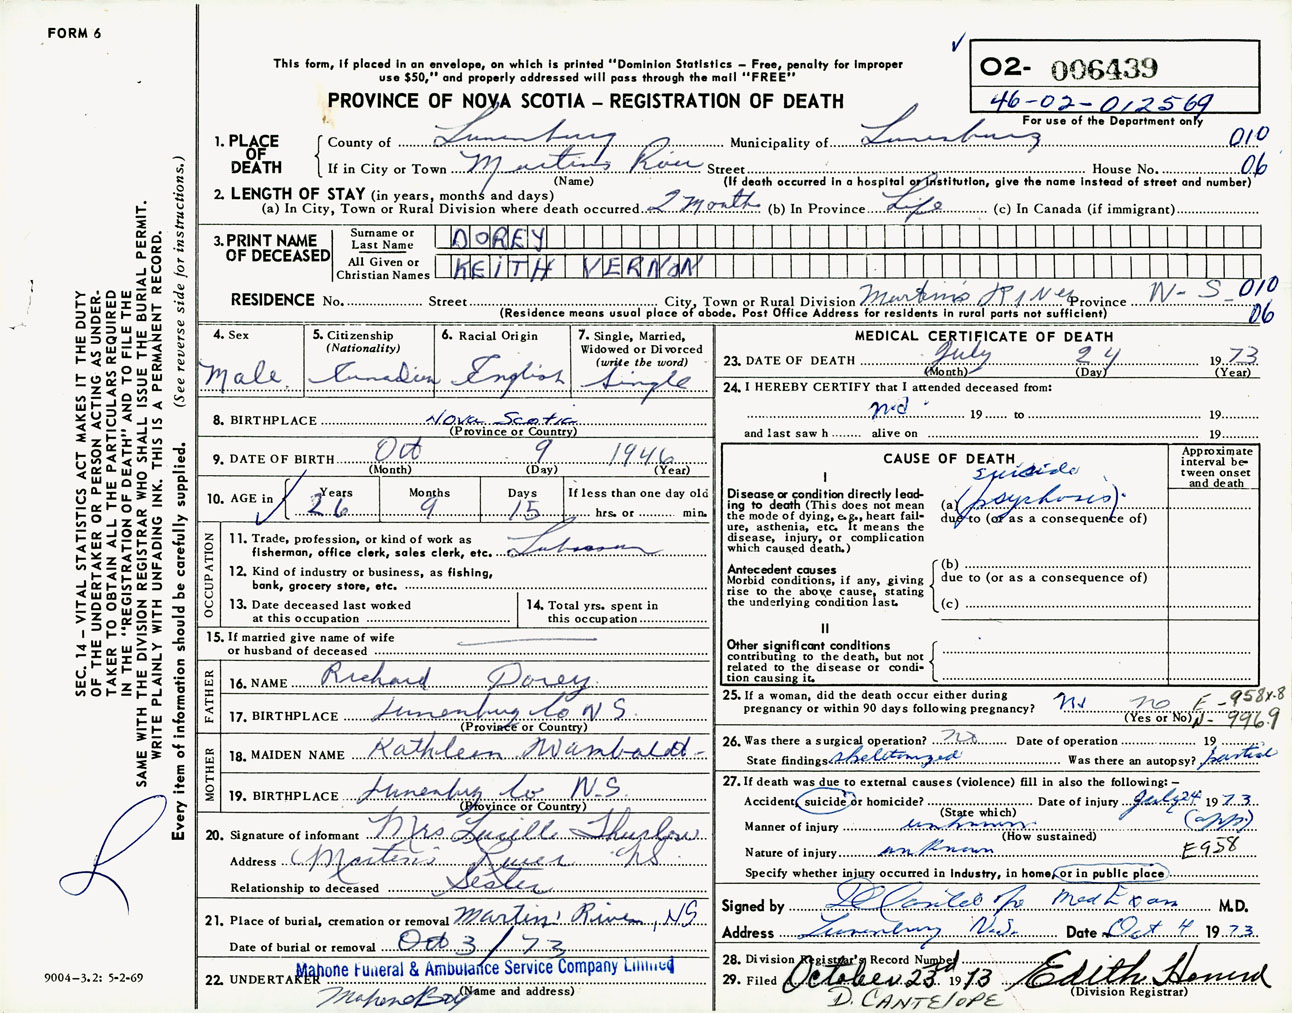 FORM 6
This form, if placed in an envelope, on which is printed "Dominion Statistics – Free, penalty for improper
use $50," and properly addressed will pass through the mail "FREE"
PROVINCE OF NOVA SCOTIA – REGISTRATION OF DEATH
O2- 006439
46-02-012569
For use of the Department only
1. PLACE OF DEATH
County of Lunenburg Municipality of Lunenburg 010
If in City or Town Martins River Street House No. 06
(Name) (If death occurred in a hospital or institution, give the name instead of street and number)
2. LENGTH OF STAY (in years, months and days)
(a) In City, Town or Rural Division where death occurred 2 months (b) In Province Life (c) In Canada (if immigrant)
3. PRINT NAME OF DECEASED
Surname or Last Name DOREY
All Given or Christian Names KEITH VERNON
RESIDENCE No. Street City, Town or Rural Division Martin's River Province N-S 010
(Residence means usual place of abode. Post Office Address for residents in rural parts not sufficient) 06
4. Sex
Male
5. Citizenship (Nationality)
Canadian
6. Racial Origin
English
7. Single, Married, Widowed or Divorced (write the word)
Single
8. BIRTHPLACE Nova Scotia
(Province or Country)
9. DATE OF BIRTH Oct 9 1946
(Month) (Day) (Year)
10. AGE in Years Months Days If less than one day old
26 9 15 hrs. or min.
OCCUPATION
11. Trade, profession, or kind of work as
fisherman, office clerk, sales clerk, etc.
12. Kind of industry or business, as fishing,
bank, grocery store, etc.
13. Date deceased last worked
at this occupation
14. Total yrs. spent in
this occupation
15. If married give name of wife
or husband of deceased
FATHER
16. NAME Richard Dorey
17. BIRTHPLACE Lunenburg Co N.S.
(Province or Country)
MOTHER
18. MAIDEN NAME Kathleen Wamboldt
19. BIRTHPLACE Lunenburg Co N.S.
(Province or Country)
20. Signature of informant Mrs Lucille Thurlow
Address Martin's River NS.
Relationship to deceased Sister
21. Place of burial, cremation or removal Martin' River, NS
Date of burial or removal Oct 3 / 73
22. UNDERTAKER Mahone Funeral & Ambulance Service Company Limited
Mahone Bay (Name and address)
MEDICAL CERTIFICATE OF DEATH
23. DATE OF DEATH July 24 1973
(Month) (Day) (Year)
24. I HEREBY CERTIFY that I attended deceased from:
19 to 19
and last saw h alive on 19
CAUSE OF DEATH
Approximate interval between onset and death
I
Disease or condition directly leading to death (This does not mean the mode of dying, e.g., heart failure, asthenia, etc. It means the disease, injury, or complication which caused death.)
suicide
(a) (psychosis)
due to (or as a consequence of)
Antecedent causes
Morbid conditions, if any, giving rise to the above cause, stating the underlying condition last.
(b)
due to (or as a consequence of)
(c)
II
Other significant conditions
contributing to the death, but not related to the disease or condition causing it.
25. If a woman, did the death occur either during
pregnancy or within 90 days following pregnancy? no E-958x.8
(Yes or No) N-996.9
26. Was there a surgical operation? No Date of operation 19
State findings skeletonized Was there an autopsy? partial
27. If death was due to external causes (violence) fill in also the following: –
Accident, suicide or homicide? Date of injury July 24 1973
(State which)
Manner of injury unknown (app)
(How sustained)
Nature of injury unknown E958
Specify whether injury occurred in Industry, in home, or in public place
Signed by D Cantelope Med Exam M.D.
Address Lunenburg N.S. Date Oct 4 1973
28. Division Registrar's Record Number
29. Filed October 23rd 1973
D. CANTELOPE
(Division Registrar)
SEC. 14 – VITAL STATISTICS ACT MAKES IT THE DUTY
OF THE UNDERTAKER OR PERSON ACTING AS UNDER-
TAKER TO OBTAIN ALL THE PARTICULARS REQUIRED
IN THE "REGISTRATION OF DEATH" AND TO FILE THE
SAME WITH THE DIVISION REGISTRAR WHO SHALL ISSUE THE BURIAL PERMIT.
WRITE PLAINLY WITH UNFADING INK. THIS IS A PERMANENT RECORD.
Every item of information should be carefully supplied. (See reverse side for instructions.)
9004–3.2: 5-2-69